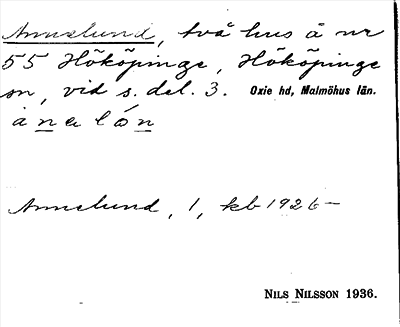 Anneslund, två hus å nr
55 Hököpinge, Hököpinge
sn, vid s. del. 3. Oxie hd, Malmöhus län.
Anneslund, 1, kb 1926–
NILS NILSSON 1936.